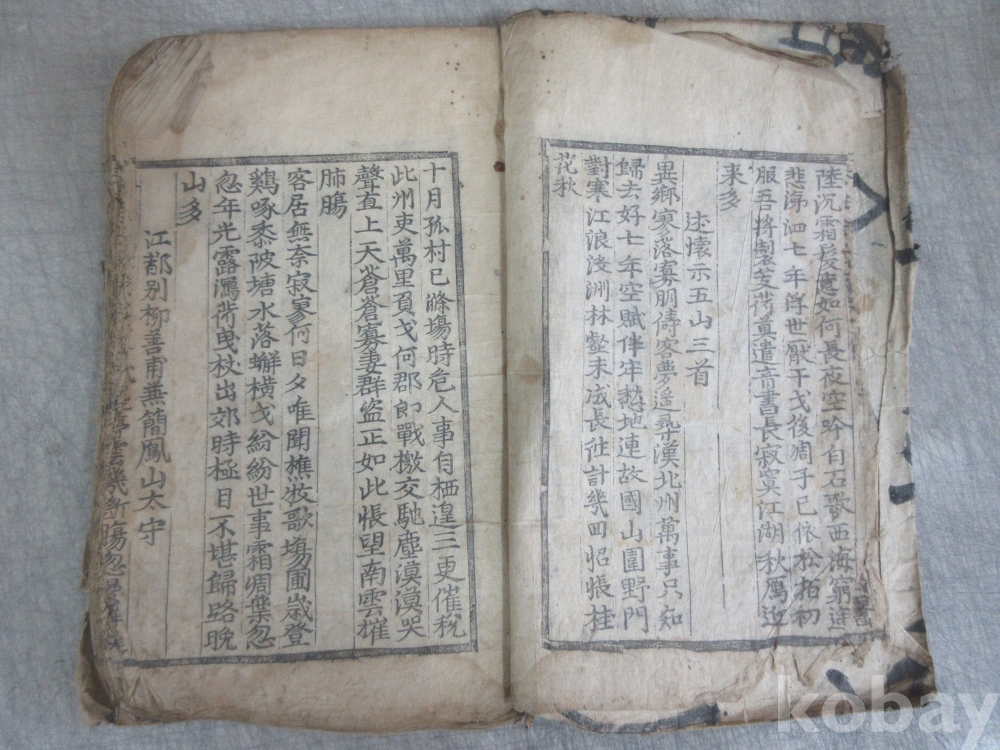 陸沉霜鬂意如何長夜空吟白石歌西海窮途
悲涕泗七年浮世厭干戈後凋子已依松柘初
服吾將製芰荷莫遣音書長寂寞江湖秋鴈近
来多
述懷示五山三首
異鄉寥落寡朋儔客夢遥尋漢北州萬事只知
歸去好七年空賦伴牢愁地連故國山圍野門
對寒江浪浸洲林壑未成長徃計幾回怊悵桂
花秋
十月孤村已滌場時危人事自栖遑三更催稅
此州吏萬里負戈何郡郎戰檄交馳塵漠漠哭
聲直上天蒼蒼寡妻群盜正如此悵望南雲摧
肺膓
客居無奈寂寥何日夕唯聞樵牧歌塲圃歲登
鷄啄黍陂塘水落蠏橫戈紛紛世事霜凋葉忽
忽年光露濕荷曳杖出郊時極目不堪歸路晩
山多
江都別柳善甫兼簡鳳山太守
kobay